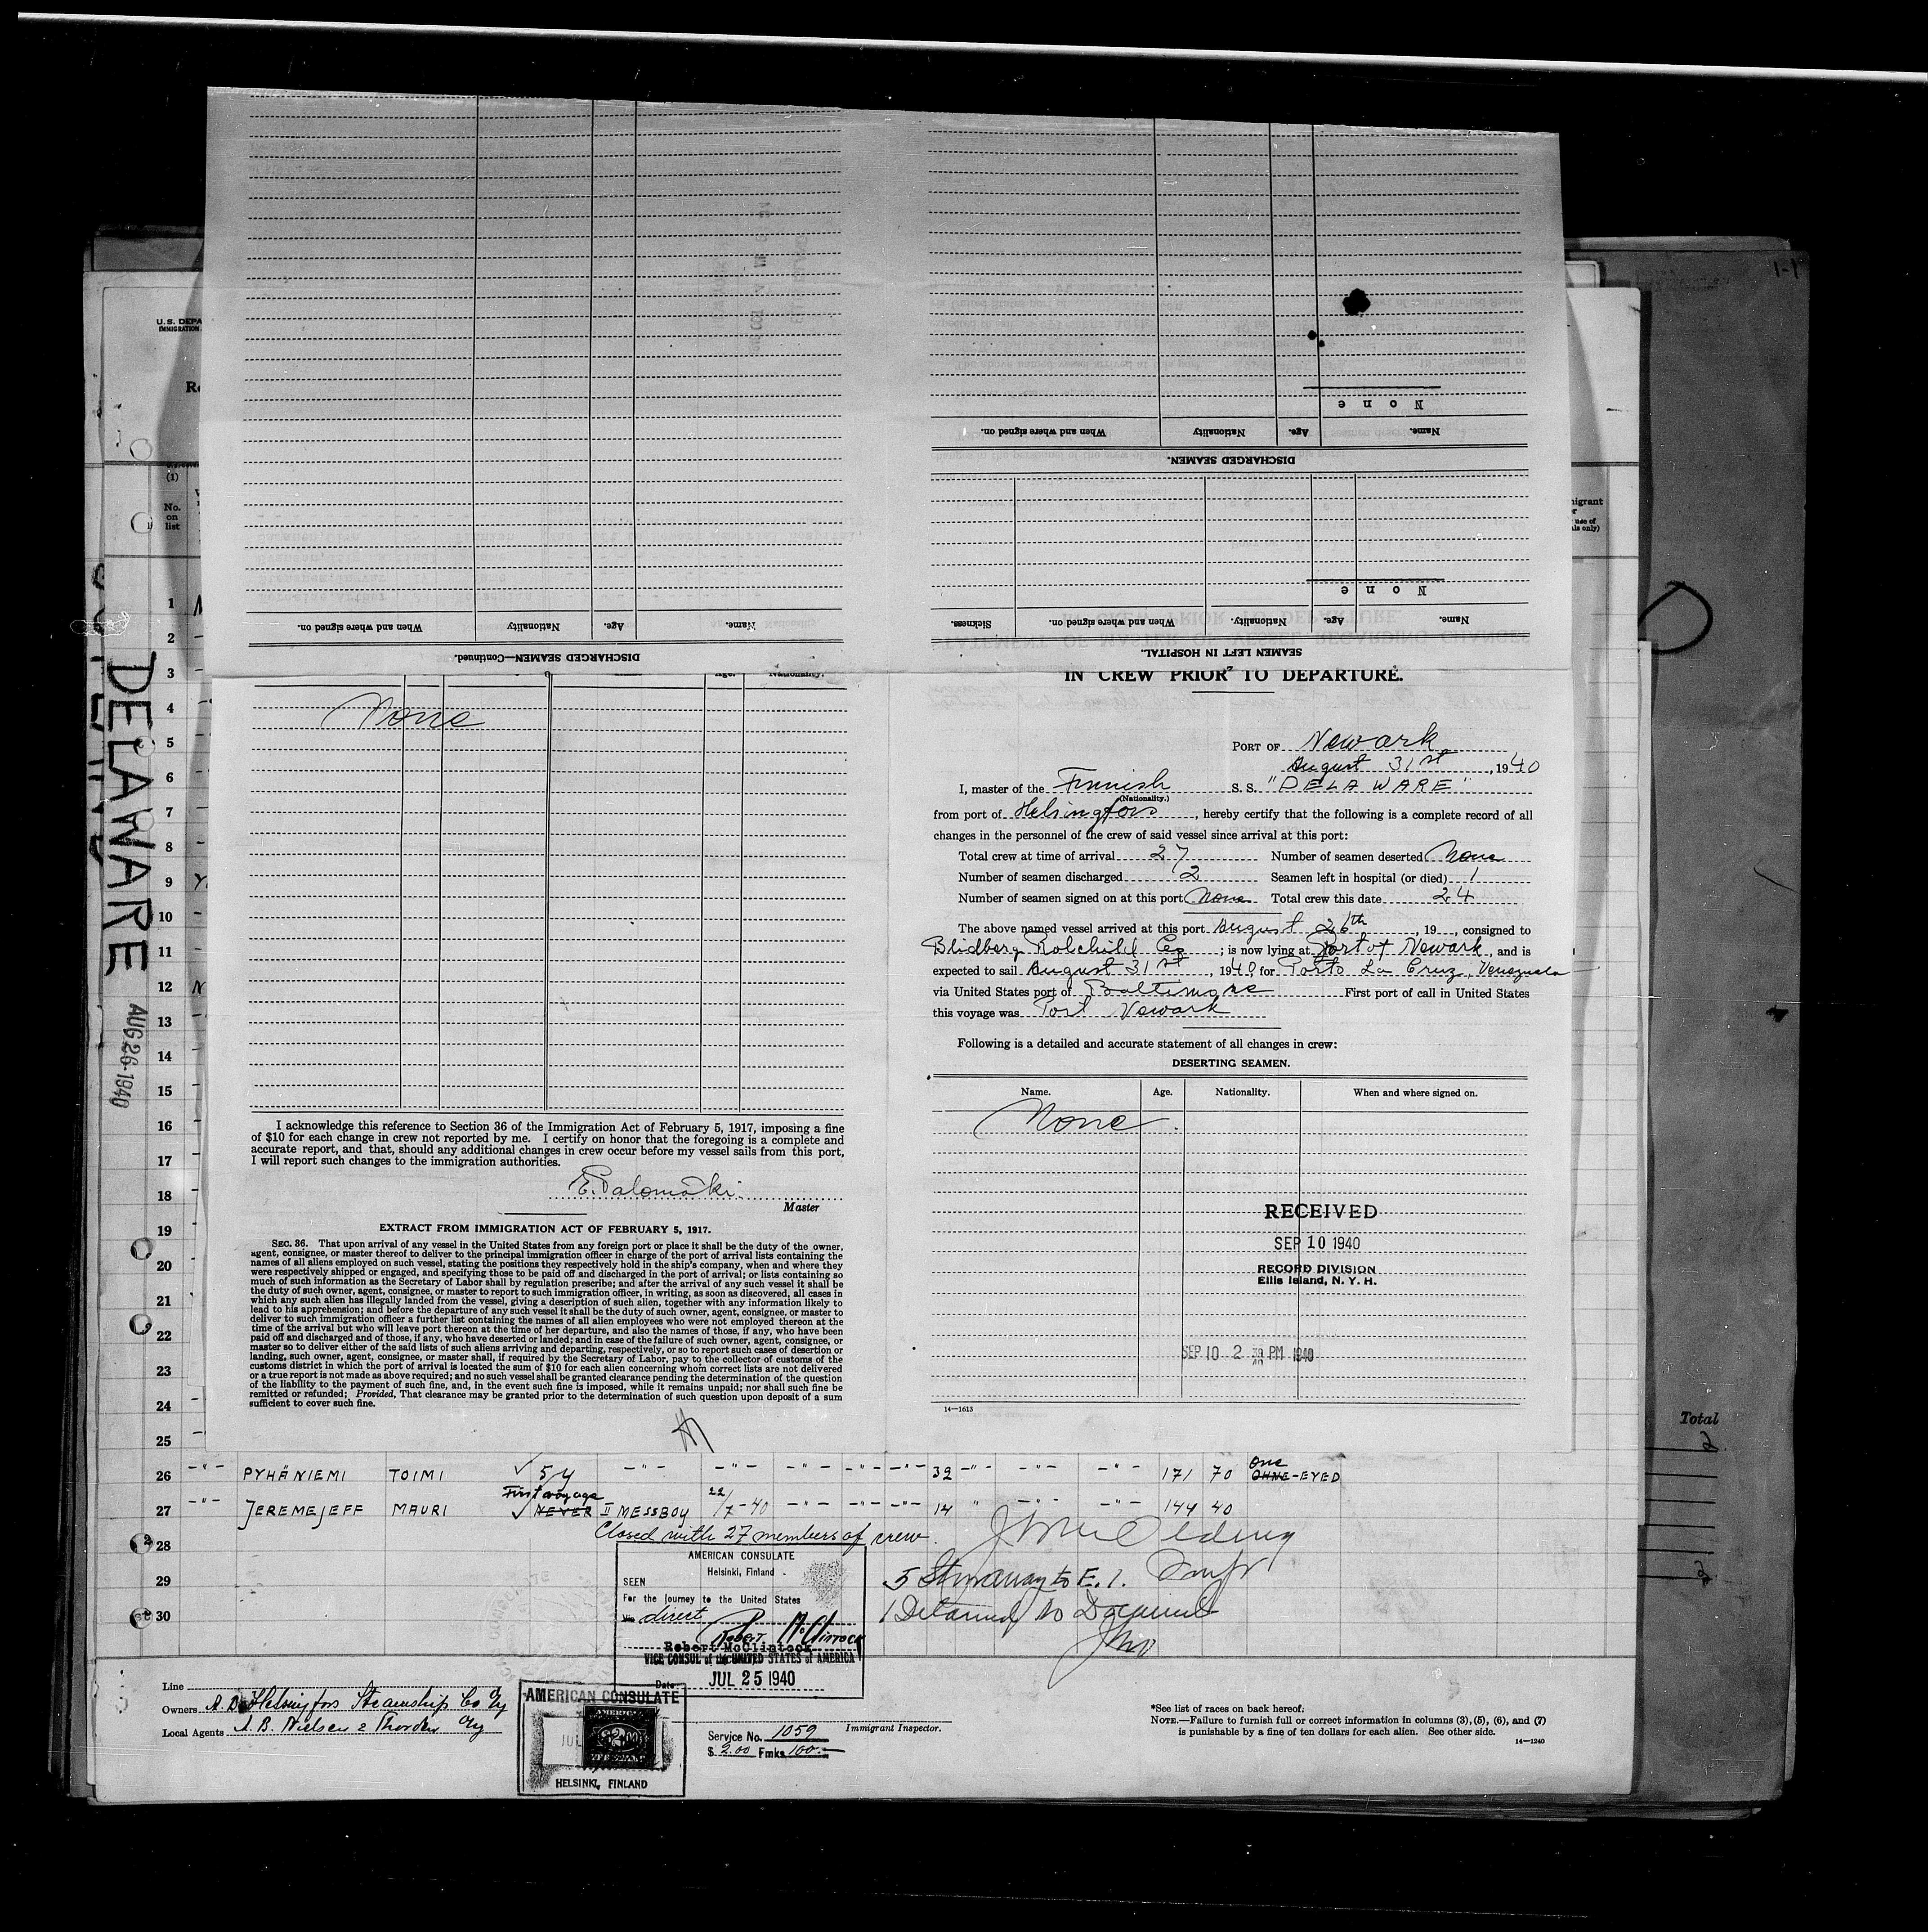 1-1
U.S. DEPA
IMMIGRATION
Name.
Age.
Nationality
When and where signed on.
DISCHARGED SEAMEN—Continued.
None
Name.
Age.
Nationality
When and where signed on.
DISCHARGED SEAMEN.
None
Name.
Age.
Nationality.
When and where signed on.
Sickness.
SEAMEN LEFT IN HOSPITAL.
(1)
No.
on
list
migrant
use of
DELAWARE
AUG 26 1940
Age.
Nationality.
None
IN CREW PRIOR TO DEPARTURE.
PORT OF Newark
August 31st, 1940
I, master of the Finnish S. S. "DELAWARE"
(Nationality.)
from port of Helsingfors, hereby certify that the following is a complete record of all
changes in the personnel of the crew of said vessel since arrival at this port:
Total crew at time of arrival 27 Number of seamen deserted None
Number of seamen discharged 2 Seamen left in hospital (or died) 1
Number of seamen signed on at this port None Total crew this date 24
The above named vessel arrived at this port August 26th, 19 , consigned to
Blidberg Rotchild Co; is now lying at Port of Newark, and is
expected to sail August 31st, 1940, for Porto La Cruz, Venezuela
via United States port of Baltimore First port of call in United States
this voyage was Port Newark
Following is a detailed and accurate statement of all changes in crew:
DESERTING SEAMEN.
Name. Age. Nationality. When and where signed on.
None
RECEIVED
SEP 10 1940
RECORD DIVISION
Ellis Island, N. Y. H.
SEP 10 2 PM 1940
14—1613
I acknowledge this reference to Section 36 of the Immigration Act of February 5, 1917, imposing a fine
of $10 for each change in crew not reported by me. I certify on honor that the foregoing is a complete and
accurate report, and that, should any additional changes in crew occur before my vessel sails from this port,
I will report such changes to the immigration authorities.
E. Palomäki.
Master
EXTRACT FROM IMMIGRATION ACT OF FEBRUARY 5, 1917.
SEC. 36. That upon arrival of any vessel in the United States from any foreign port or place it shall be the duty of the owner,
agent, consignee, or master thereof to deliver to the principal immigration officer in charge of the port of arrival lists containing the
names of all aliens employed on such vessel, stating the positions they respectively hold in the ship's company, when and where they
were respectively shipped or engaged, and specifying those to be paid off and discharged in the port of arrival; or lists containing so
much of such information as the Secretary of Labor shall by regulation prescribe; and after the arrival of any such vessel it shall be
the duty of such owner, agent, consignee, or master to report to such immigration officer, in writing, as soon as discovered, all cases in
which any such alien has illegally landed from the vessel, giving a description of such alien, together with any information likely to
lead to his apprehension; and before the departure of any such vessel it shall be the duty of such owner, agent, consignee, or master to
deliver to such immigration officer a further list containing the names of all alien employees who were not employed thereon at the
time of the arrival but who will leave port thereon at the time of her departure, and also the names of those, if any, who have been
paid off and discharged and of those, if any, who have deserted or landed; and in case of the failure of such owner, agent, consignee, or
master so to deliver either of the said lists of such aliens arriving and departing, respectively, or so to report such cases of desertion or
landing, such owner, agent, consignee, or master shall, if required by the Secretary of Labor, pay to the collector of customs of the
customs district in which the port of arrival is located the sum of $10 for each alien concerning whom correct lists are not delivered
or a true report is not made as above required; and no such vessel shall be granted clearance pending the determination of the question
of the liability to the payment of such fine, and, in the event such fine is imposed, while it remains unpaid; nor shall such fine be
remitted or refunded; Provided, That clearance may be granted prior to the determination of such question upon deposit of a sum
sufficient to cover such fine.
1
2
3
4
5
6
7
8
9
10
11
12
13
14
15
16
17
18
19
20
21
22
23
24
25
Total
26 -"- PYHÄNIEMI TOIMI ✓ 5 y -"- -"- -"- -"- -"- 32 -"- -"- -"- 171 70 One OHNE-EYED
27 -"- JEREMEJEFF MAURI ✓ First voyage NEVER II MESSBOY 22/7-40 -"- -"- -"- 14 " -"- -"- 144 40
28 Closed with 27 members of crew.
29 5 Stowaway to E. I.
30 1 Detained No Documents
AMERICAN CONSULATE
Helsinki, Finland.
SEEN
For the journey to the United States
Via direct
Robert McClintock
Robert McClintock
VICE CONSUL of the UNITED STATES of AMERICA
Date JUL 25 1940
Line
Owners A.B. Helsingfors Steamship Co Oy
Local Agents A.B. Nielsen & Thorden Oy
AMERICAN CONSULATE
AMERICAN
$2.00
JUL
HELSINKI, FINLAND
Service No. 1059
$ 2.00 Fmks 100.-
Immigrant Inspector.
*See list of races on back hereof.
NOTE.—Failure to furnish full or correct information in columns (3), (5), (6), and (7)
is punishable by a fine of ten dollars for each alien. See other side.
14—1240